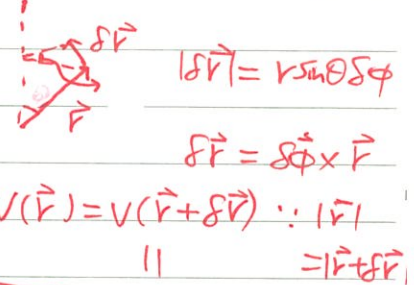 δr⃗
r⃗
|δr⃗| = r sinθ δϕ
δr⃗ = δϕ⃗ × r⃗
V(r⃗) = V(r⃗+δr⃗) ∵ |r⃗|
|| = |r⃗+δr⃗|